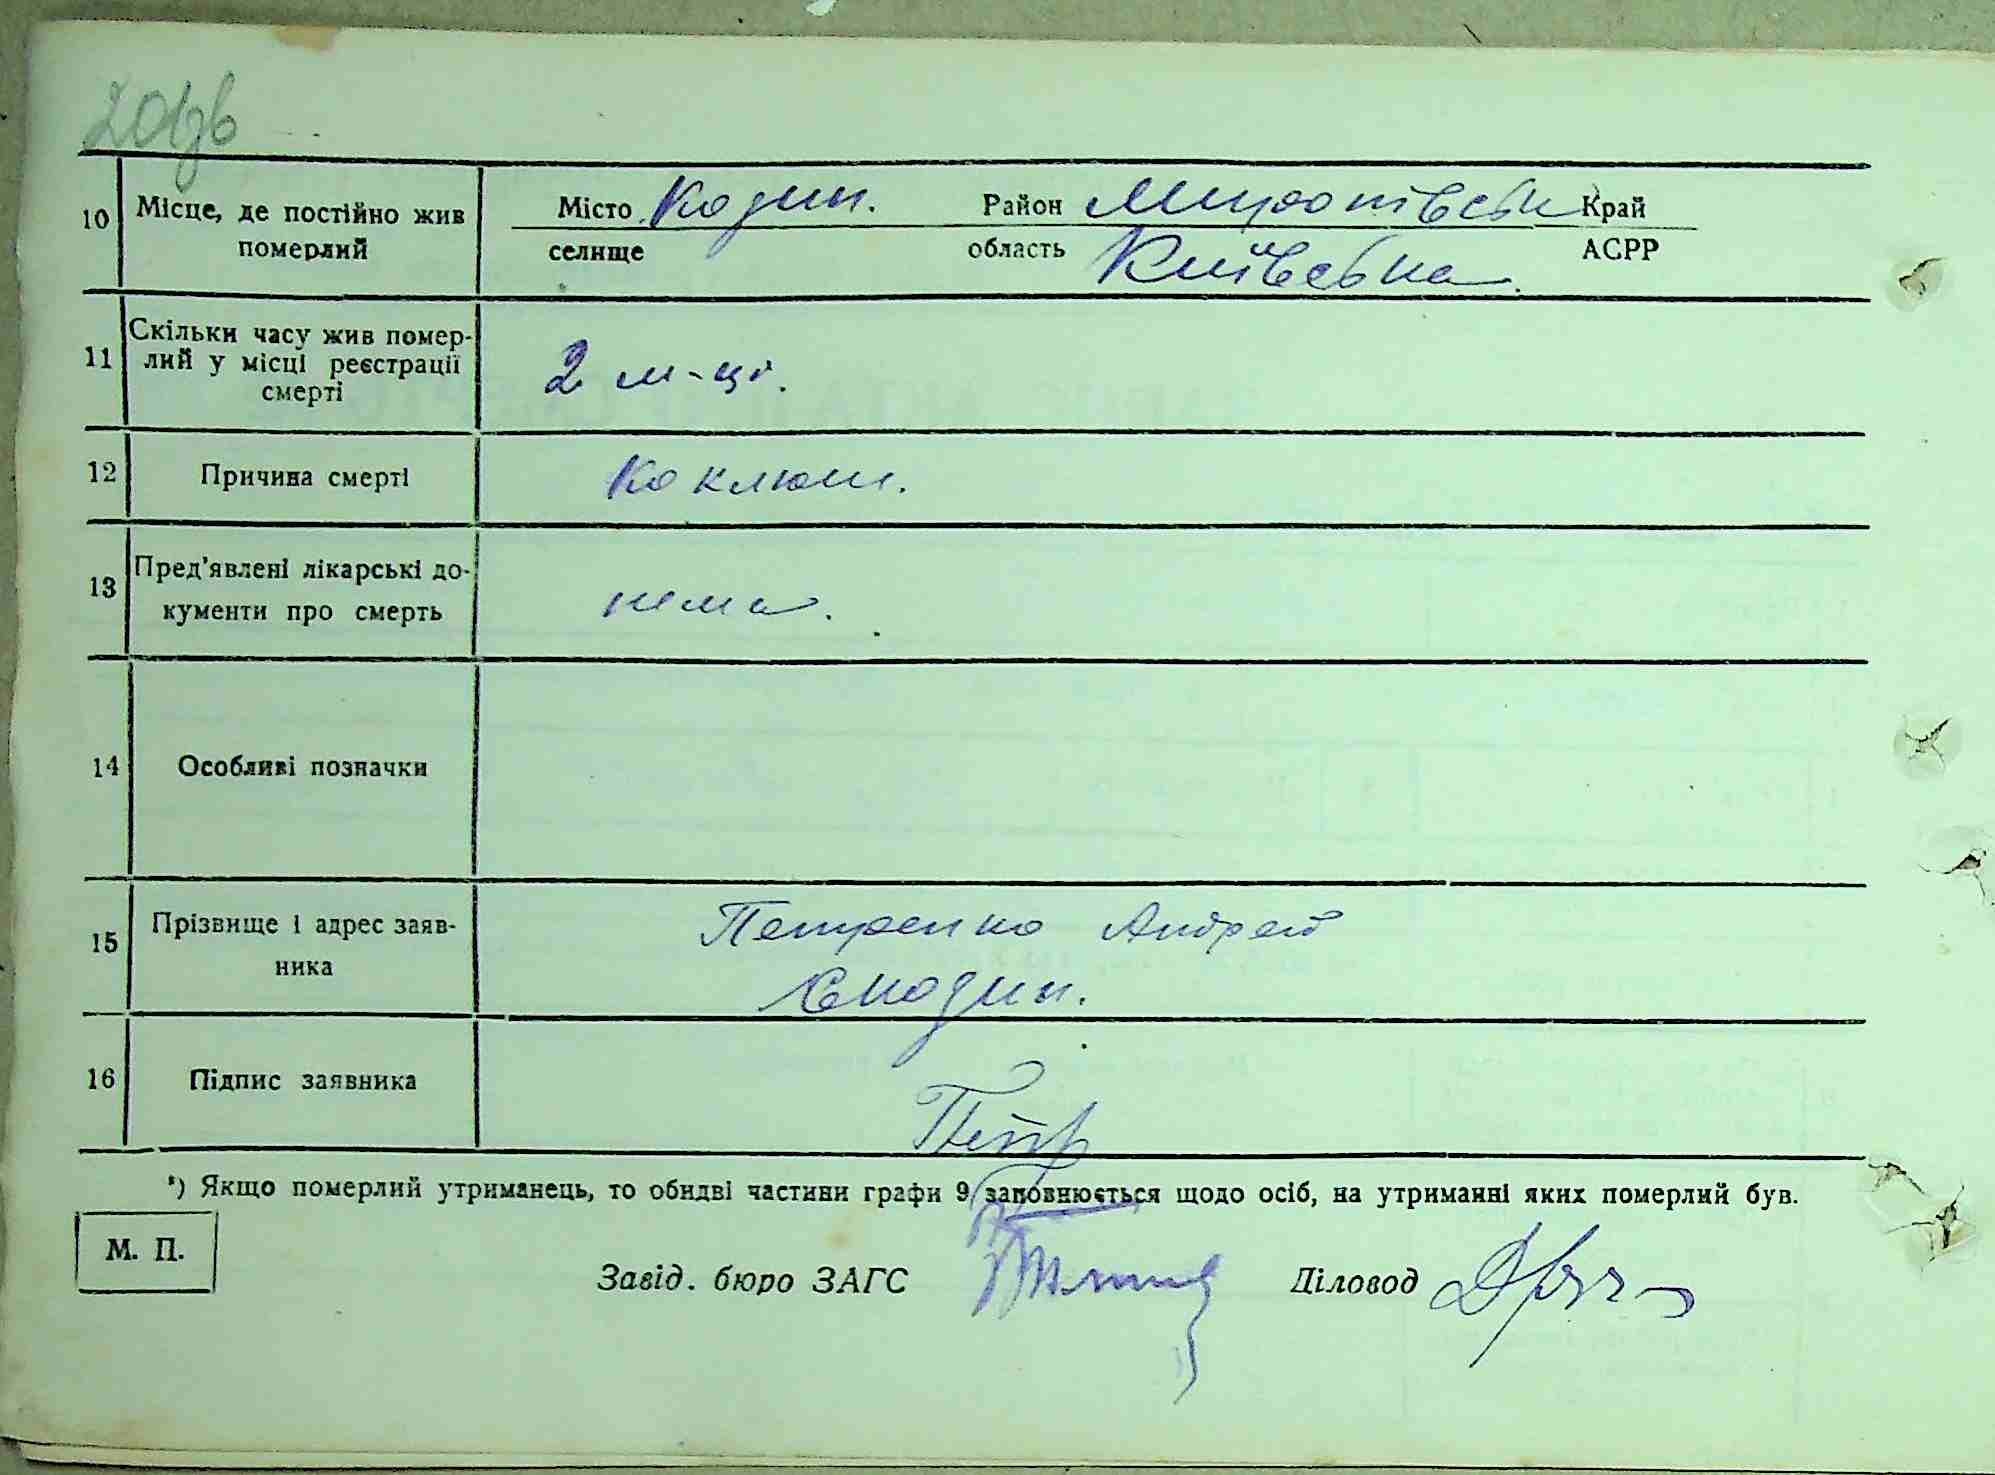 201зв
10 Місце, де постійно жив Місто Кодин. Район Миротівськ Край
померлий селище область Київська. АСРР
11 Скільки часу жив помер-
лий у місці реєстрації 2 м-ці.
смерті
12 Причина смерті Коклюш.
13 Пред'явлені лікарські до-
кументи про смерть нема.
14 Особливі позначки
15 Прізвище і адрес заяв- Петренко Андрей
ника с Кодин.
16 Підпис заявника Петр
*) Якщо померлий утриманець, то обидві частини графи 9 заповнюється щодо осіб, на утриманні яких померлий був.
М. П.
Завід. бюро ЗАГС Діловод